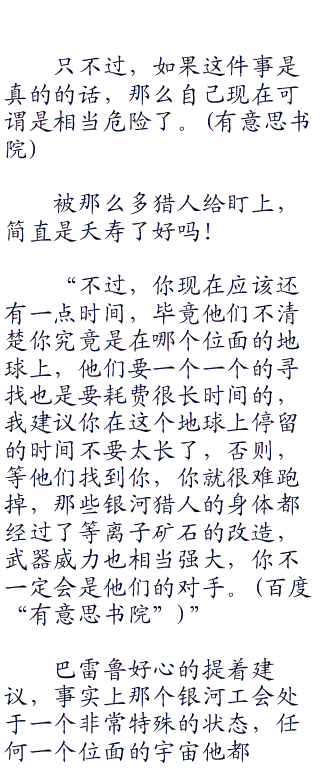 只不过，如果这件事是
真的的话，那么自己现在可
谓是相当危险了。(有意思书
院)
被那么多猎人给盯上，
简直是夭寿了好吗！
“不过，你现在应该还
有一点时间，毕竟他们不清
楚你究竟是在哪个位面的地
球上，他们要一个一个的寻
找也是要耗费很长时间的，
我建议你在这个地球上停留
的时间不要太长了，否则，
等他们找到你，你就很难跑
掉，那些银河猎人的身体都
经过了等离子矿石的改造，
武器威力也相当强大，你不
一定会是他们的对手。(百度
“有意思书院”)”
巴雷鲁好心的提着建
议，事实上那个银河工会处
于一个非常特殊的状态，任
何一个位面的宇宙他都